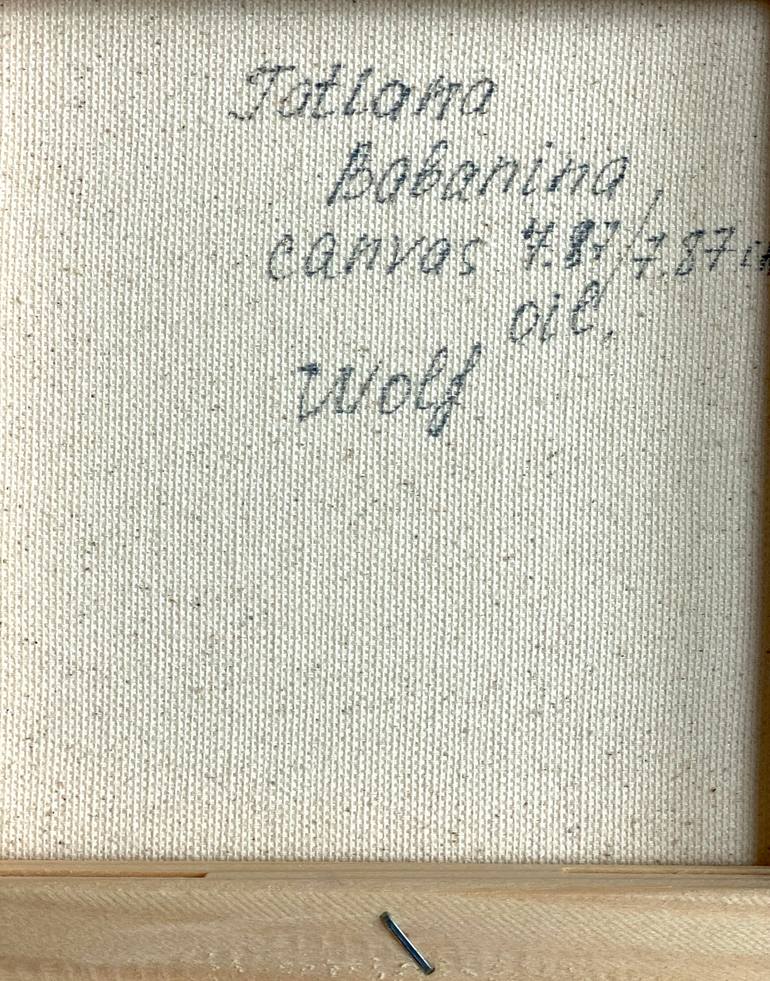 Tatiana
Babanina,
canvas 7.87/7.87
oil,
Wolf